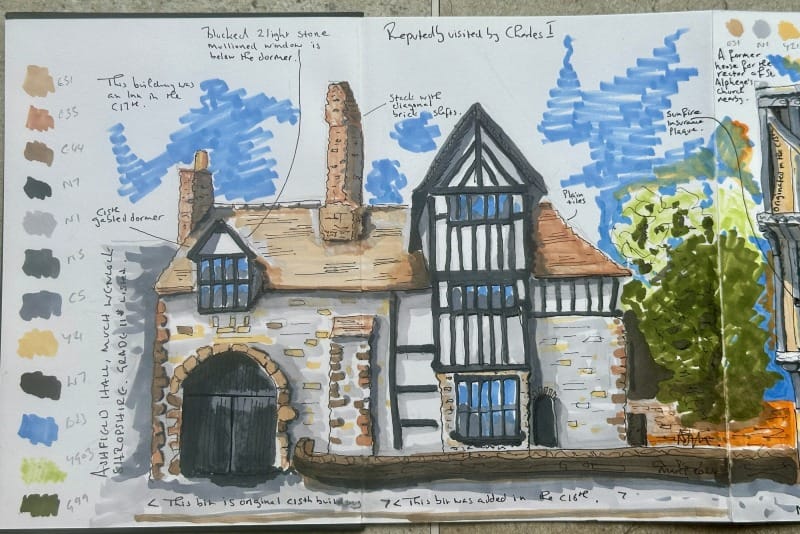 Blocked 2 light stone
mullioned window is
below the dormer.
Reputedly visited by Charles I
This building was
an Inn in the
C17th.
Stack with
diagonal
brick strips.
Plain
tiles
C15th
gabled dormer
Sun Fire
Insurance
Plaque.
A former
house for the
rector of St
Alphege's
church
nearby.
Originated in the C15
E51
E35
E44
N7
N1
N5
C5
Y21
W7
B23
YG03
G99
E51
N1
Y21
ASHFIELD HALL, MUCH WENLOCK
SHROPSHIRE. GRADE II* LISTED.
< This bit is original C15th building
>< This bit was added in the C16th. >